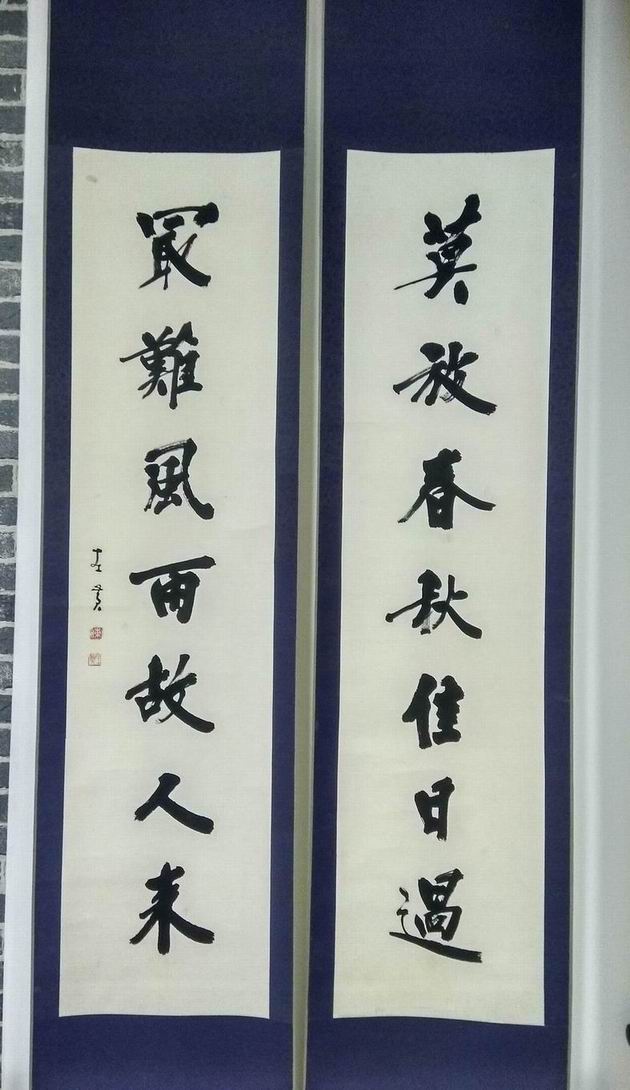 莫放春秋佳日過
冣難風雨故人来